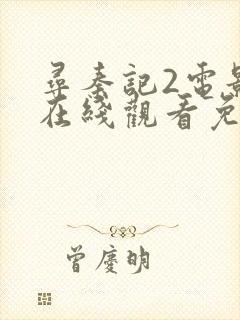 尋秦記2電影
在綫觀看免
曾慶明